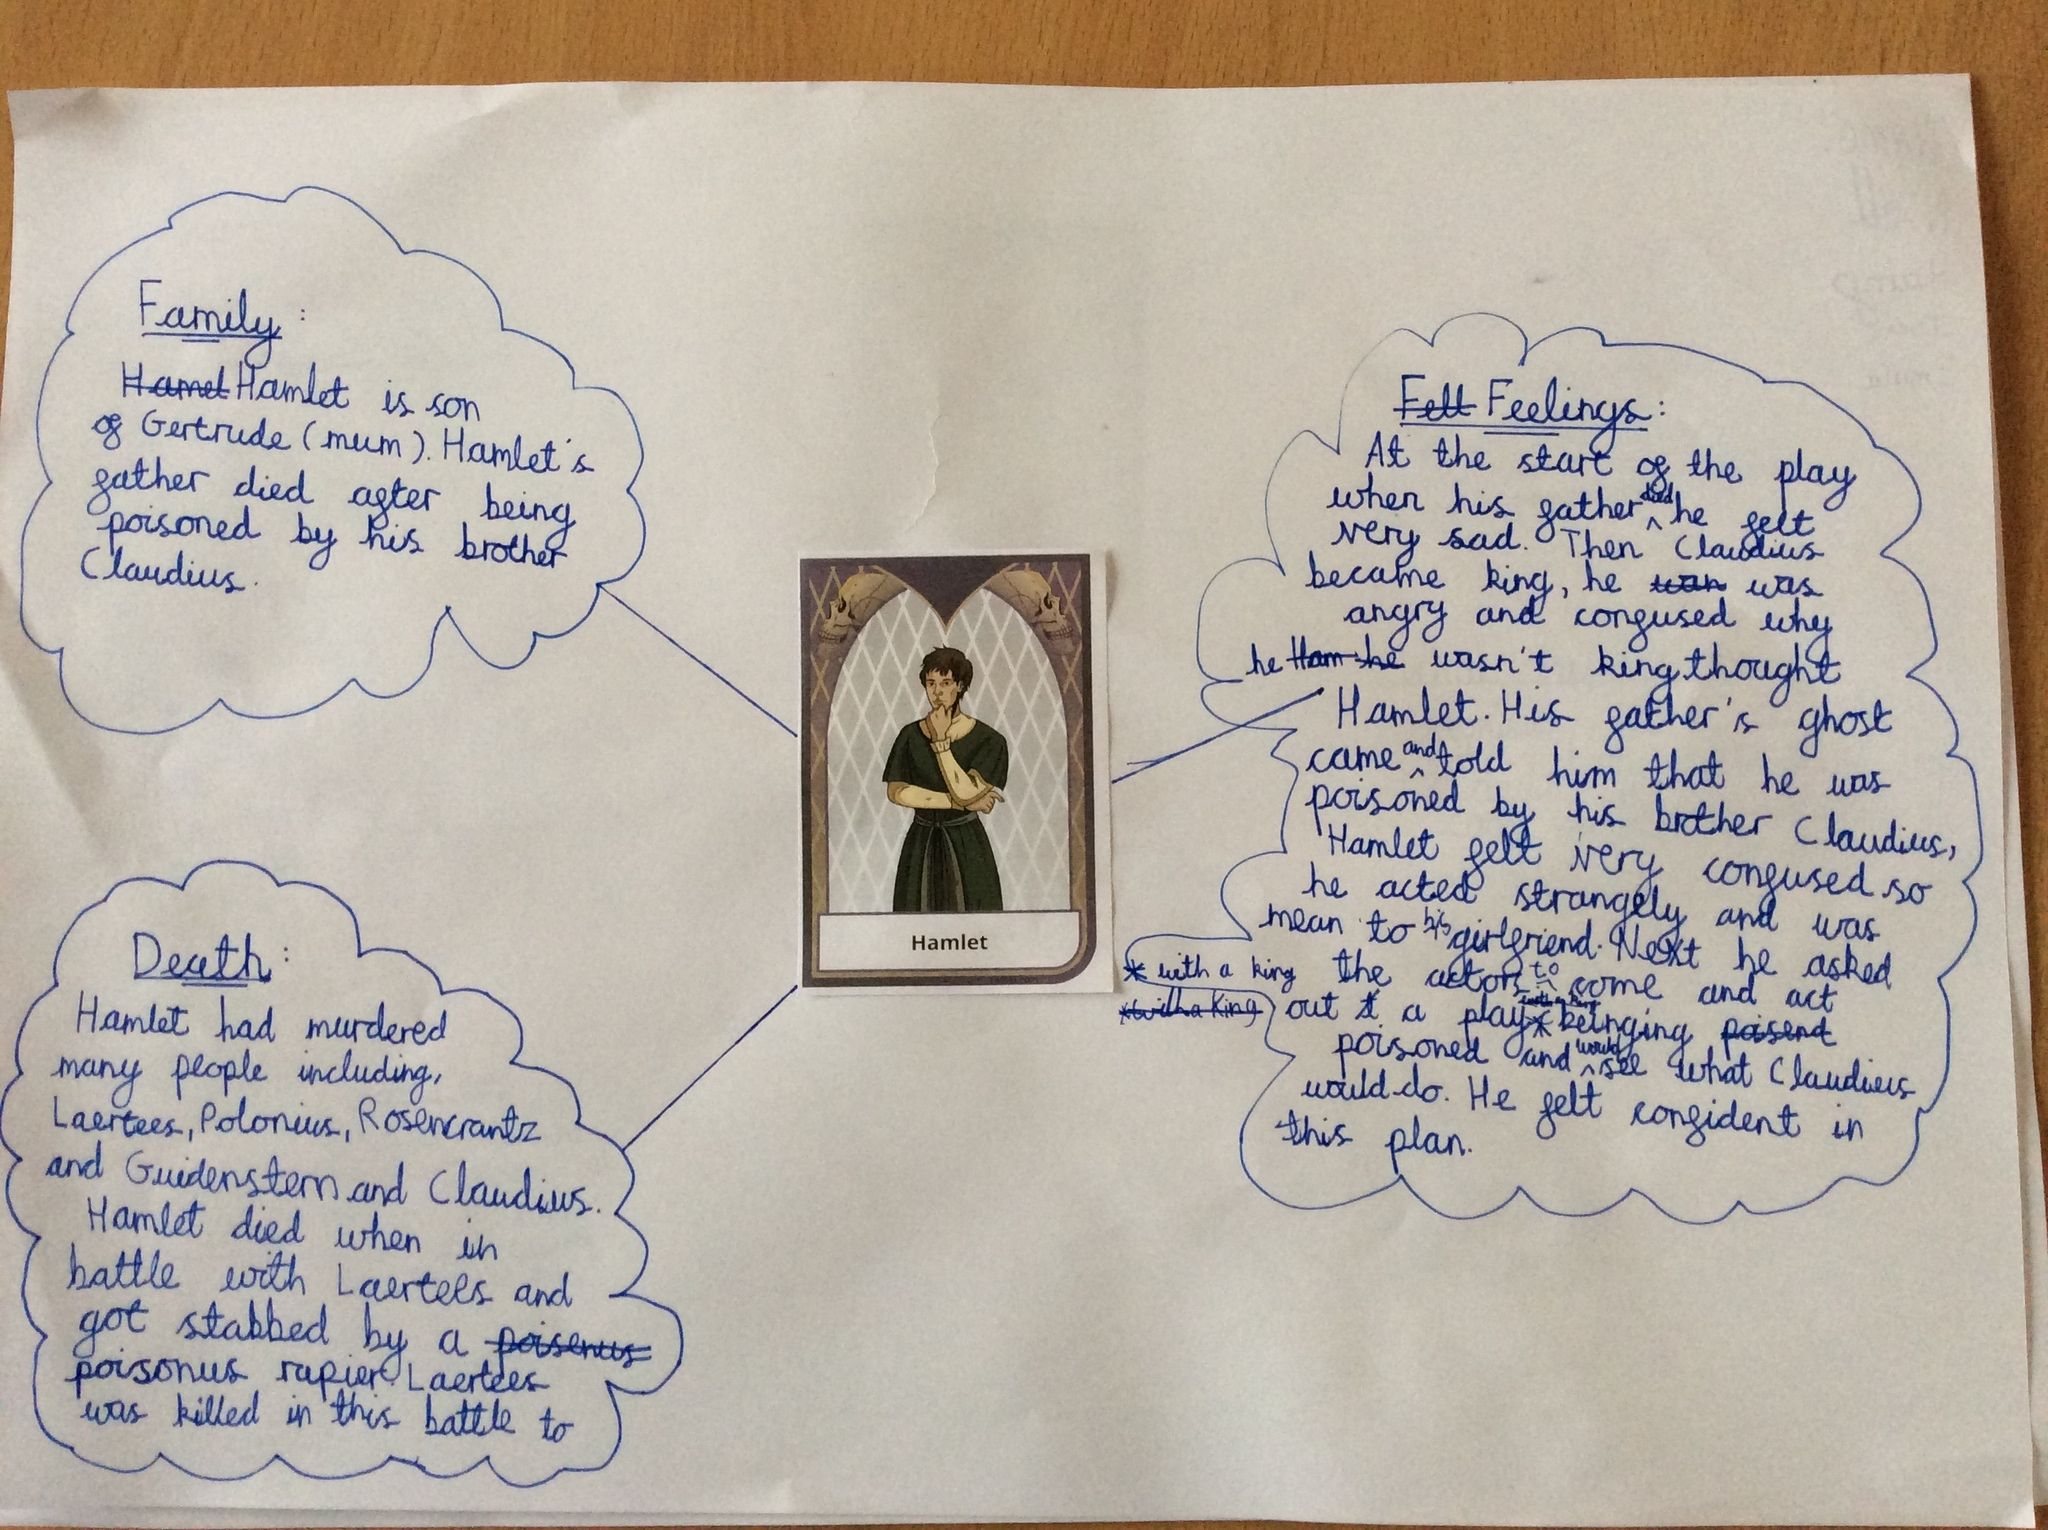 Family:
Hamel Hamlet is son
of Gertrude (mum). Hamlet's
father died after being
poisoned by his brother
Claudius.
Death:
Hamlet had murdered
many people including,
Laertees, Polonius, Rosencrantz
and Guidenstern and Claudius.
Hamlet died when in
battle with Laertees and
got stabbed by a poisenus
poisonus rapier. Laertees
was killed in this battle to
Hamlet
Fell Feelings:
At the start of the play
when his father died he felt
very sad. Then Claudius
became king, he wan was
angry and confused why
he Ham he wasn't king thought
Hamlet. His father's ghost
came and told him that he was
poisoned by his brother Claudius,
Hamlet felt very confused so
he acted strangely and was
mean to his girlfriend. Next he asked
* with a king the actors to come and act
*with a King out a play * with a king beinging poisend
poisoned and would see what Claudius
would do. He felt confident in
this plan.